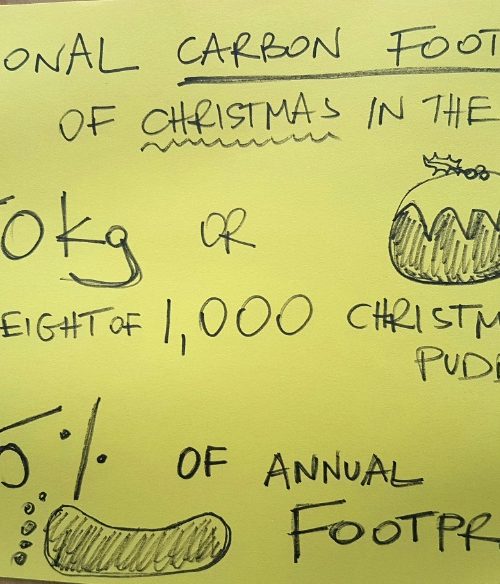 ONAL CARBON FOOT
OF CHRISTMAS IN THE
0kg OR
EIGHT OF 1,000 CHRISTM
PUD
5% OF ANNUAL
FOOTPR